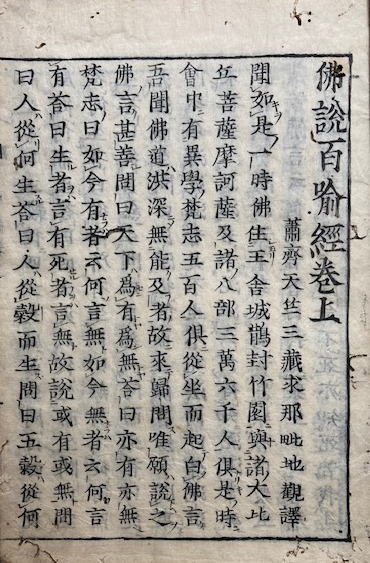 佛說百喻經卷上
蕭齊天竺三藏求那毗地觀譯
聞如是一時佛住王舍城鵲封竹園與諸大比
丘菩薩摩訶薩及諸八部三萬六千人俱是時
會中有異學梵志五百人俱從坐而起白佛言
吾聞佛道洪深無能及者故來歸問唯願說之
佛言甚善問曰天下為有為無答曰亦有亦無
梵志曰如今有者云何言無如今無者云何言
有答曰生者言有死者言無故說或有或無問
曰人從何生答曰人從穀而生問曰五穀從何